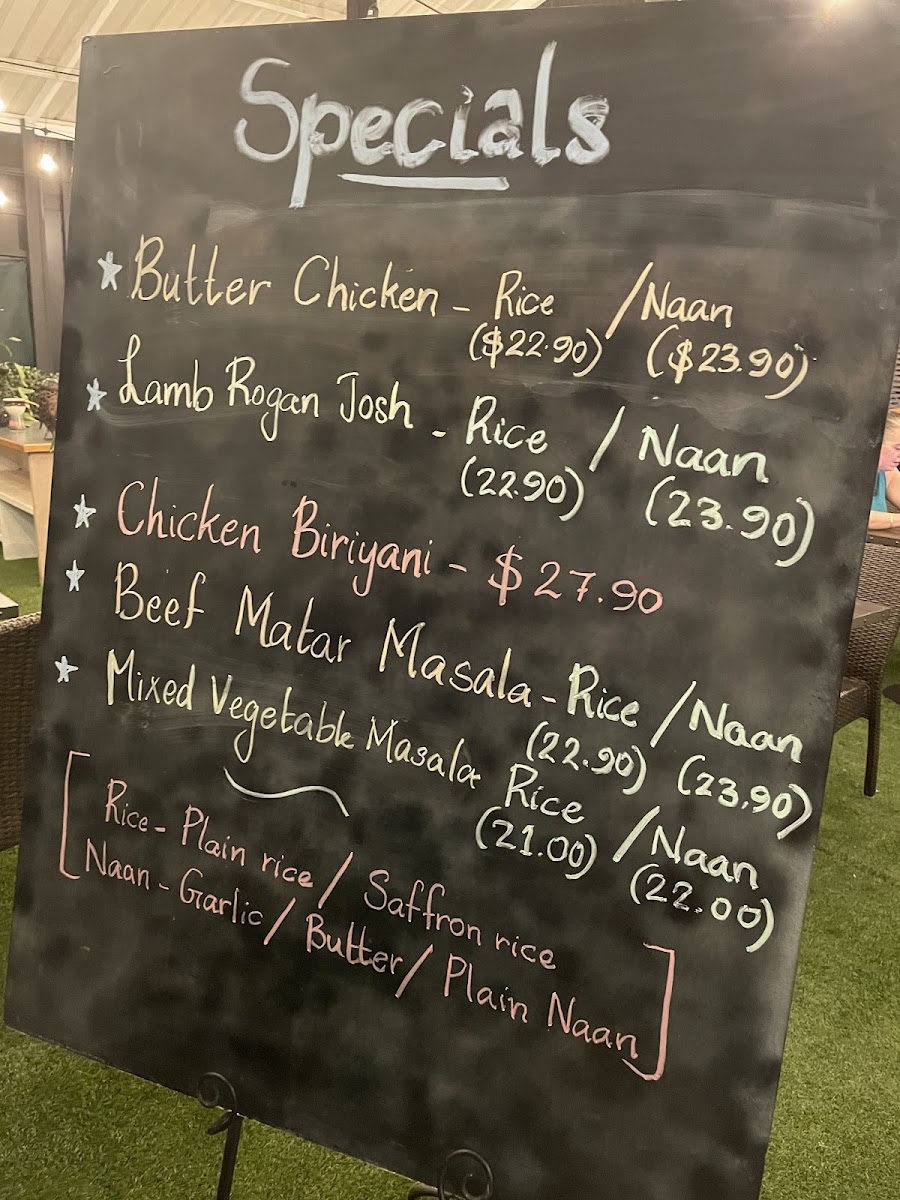 Specials
Butter Chicken - Rice / Naan
($22.90) ($23.90)
Lamb Rogan Josh - Rice / Naan
(22.90) (23.90)
Chicken Biriyani - $27.90
Beef Matar Masala - Rice / Naan
(22.90) (23.90)
Mixed Vegetable Masala Rice / Naan
(21.00) (22.00)
[Rice - Plain rice / Saffron rice
Naan - Garlic / Butter / Plain Naan]